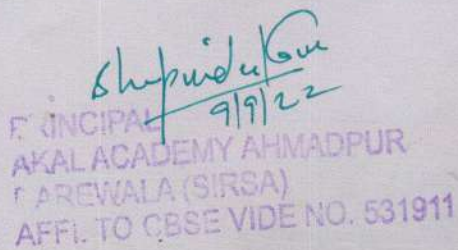 9/9/22
PRINCIPAL
AKAL ACADEMY AHMADPUR
DAREWALA (SIRSA)
AFFI. TO CBSE VIDE NO. 531911